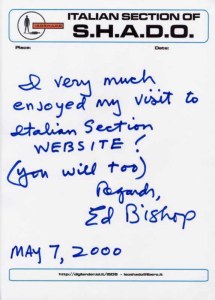 ITALIAN SECTION OF
S.H.A.D.O.
Place:
Date:
I very much
enjoyed my visit to
Italian Section
WEBSITE!
(you will too)
Regards,
Ed Bishop
MAY 7, 2000